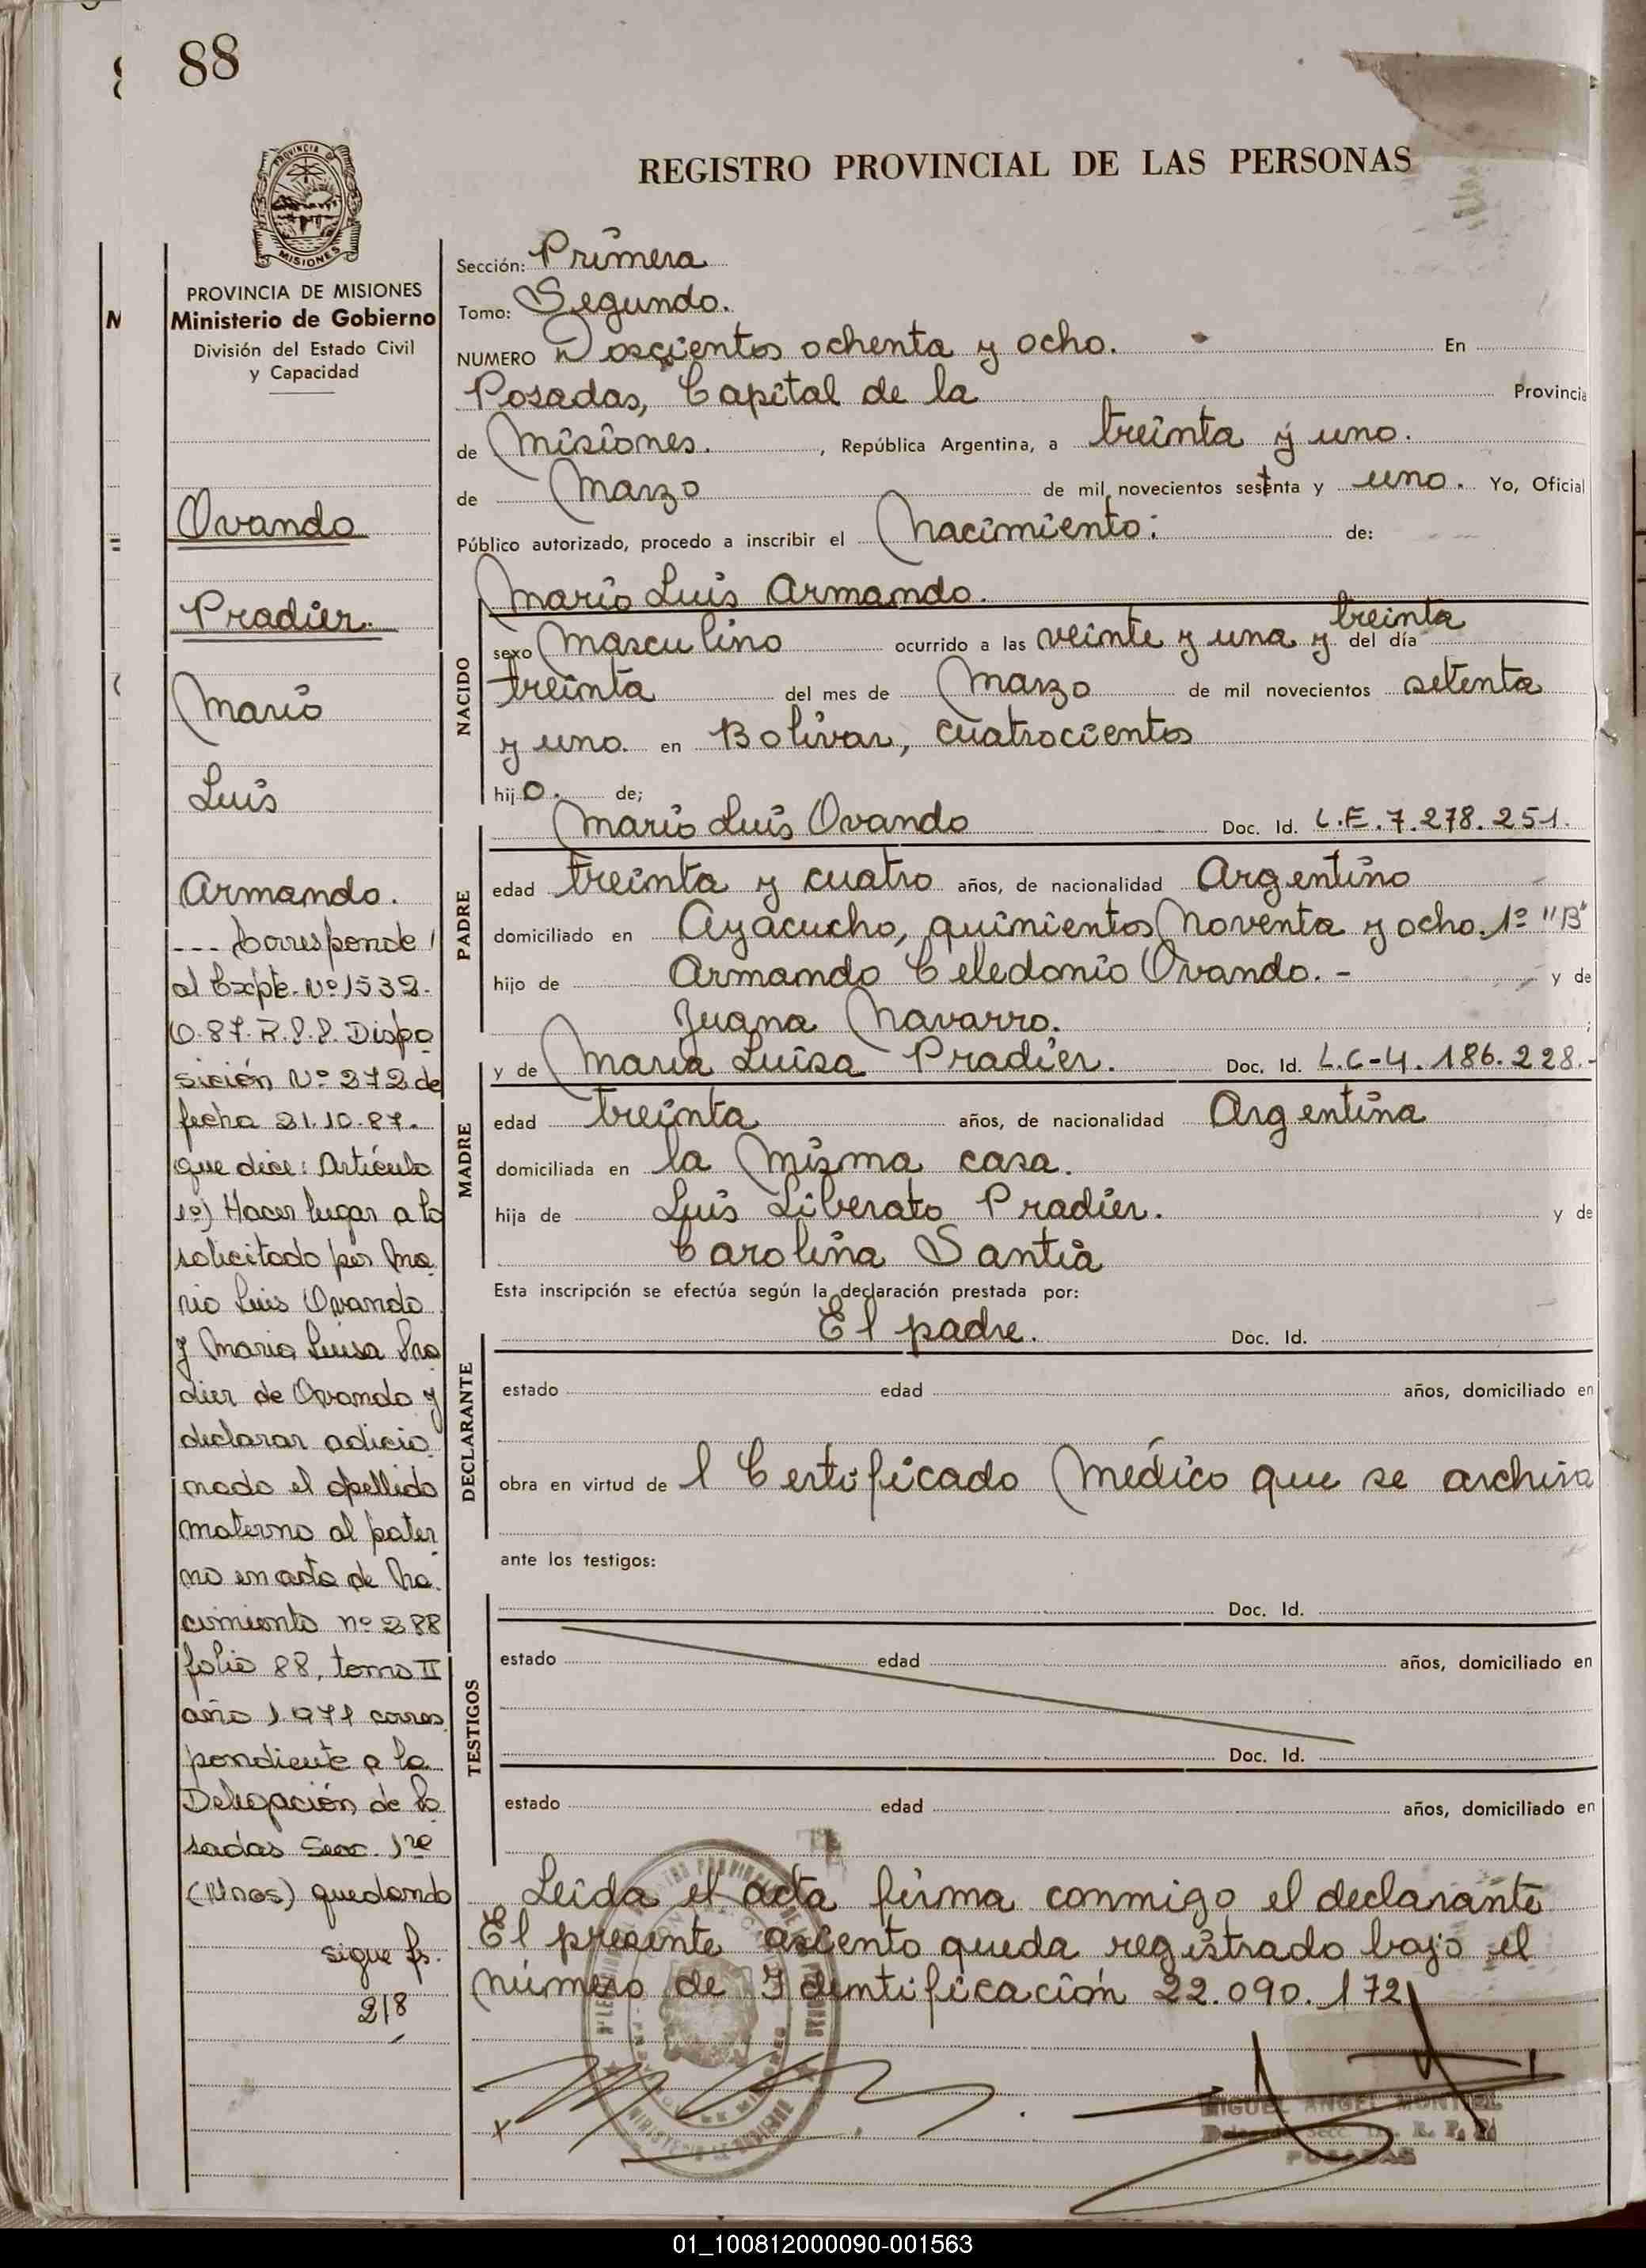 88
REGISTRO PROVINCIAL DE LAS PERSONAS
PROVINCIA DE
MISIONES
PROVINCIA DE MISIONES
Ministerio de Gobierno
División del Estado Civil
y Capacidad
Ovando
Pradier.
Mario
Luis
Armando.
--- Corresponde
al Expte. Nº 1532.
O.87. R.P.P. Dispo
sición Nº 272 de
fecha 21.10.87.
que dice: Artículo
1º) Hacer lugar a lo
solicitado por Ma
rio Luis Ovando
y Maria Luisa Pra
dier de Ovando y
declarar adicio
nado el apellido
materno al pater
no en acta de Na
cimiento nº 288
folio 88, tomo II
año 1971 corres
pondiente a la
Delegación de Po
sadas Secc. 1ra
quedando
sigue fs.
218
Sección: Primera
Tomo: Segundo.
NUMERO Doscientos ochenta y ocho. En
Posadas, Capital de la Provincia
de Misiones. , República Argentina, a treinta y uno.
de Marzo de mil novecientos setenta y uno. Yo, Oficial
Público autorizado, procedo a inscribir el Nacimiento: de:
Mario Luis Armando.
NACIDO
sexo Masculino ocurrido a las veinte y una y treinta del día
treinta del mes de Marzo de mil novecientos setenta
y uno en Bolivar, cuatrocientos
hijo. de;
PADRE
Mario Luis Ovando Doc. Id. L.E. 7.278.251.
edad treinta y cuatro años, de nacionalidad Argentino
domiciliado en Ayacucho, quinientos Noventa y ocho. 1º "B"
hijo de Armando Celedonio Ovando. - y de
Juana Navarro. ;
MADRE
y de Maria Luisa Pradier. Doc. Id. L.C-4.186.228.-
edad treinta años, de nacionalidad Argentina
domiciliada en la misma casa.
hija de Luis Liberato Pradier. y de
Carolina Santiá
Esta inscripción se efectúa según la declaración prestada por:
DECLARANTE
El padre. Doc. Id.
estado edad años, domiciliado en
obra en virtud de l Certificado Médico que se archiva
ante los testigos:
TESTIGOS
Doc. Id.
estado edad años, domiciliado en
Doc. Id.
estado edad años, domiciliado en
Leida el acta firma conmigo el declarante
El presente asiento queda registrado bajo el
número de Identificación 22.090.172
MIGUEL ANGEL MONTIEL
R. P. P.
POSADAS
01_100812000090-001563